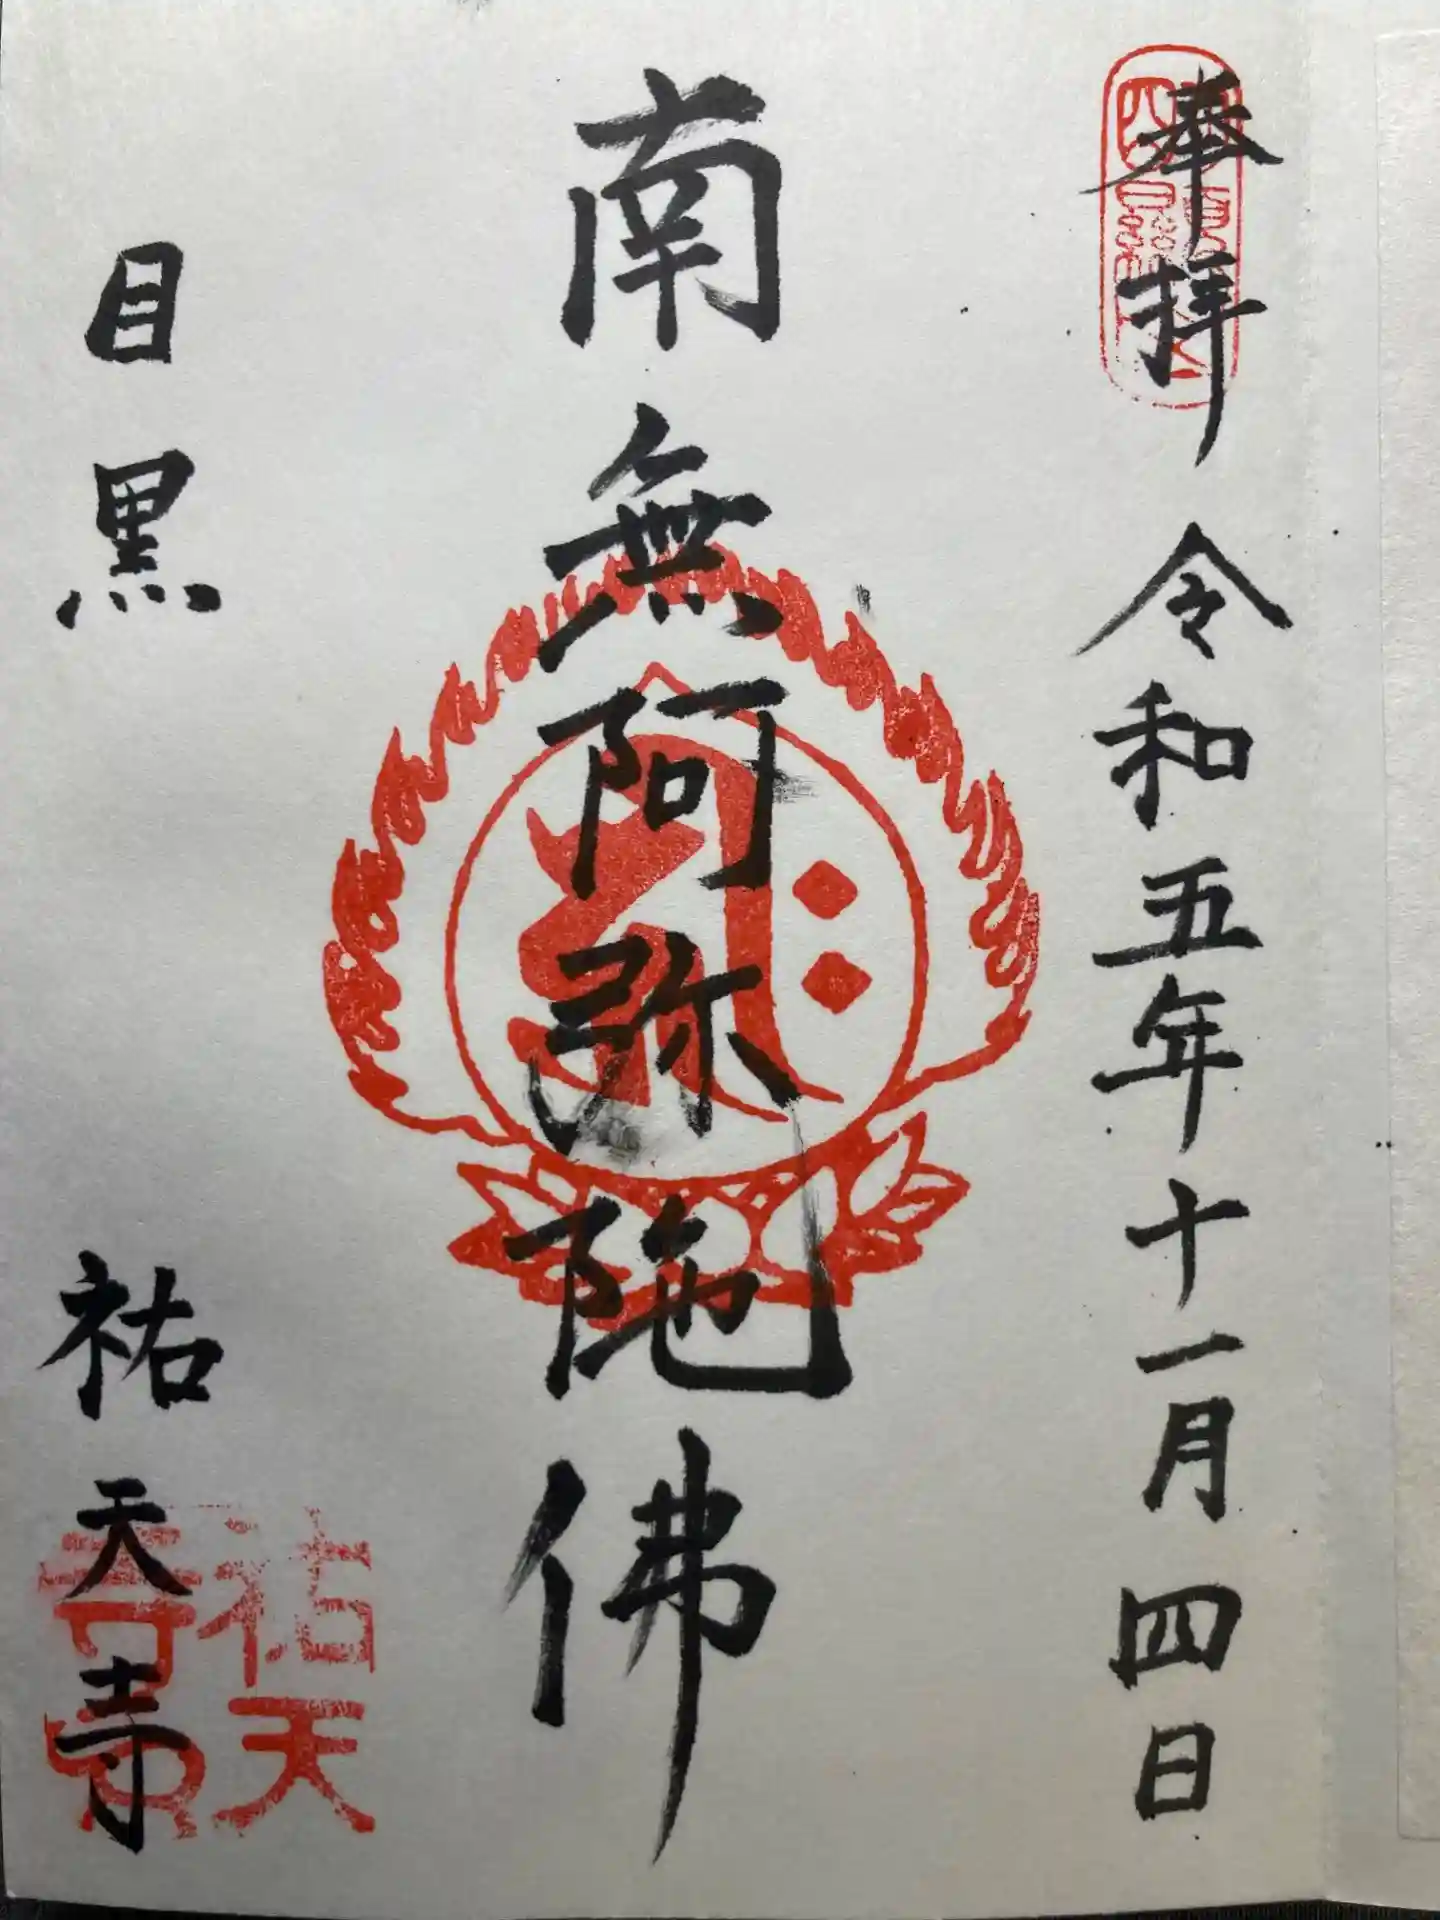 奉拝 令和五年十一月四日
南無阿弥陁佛
目黒 祐天寺
祐天